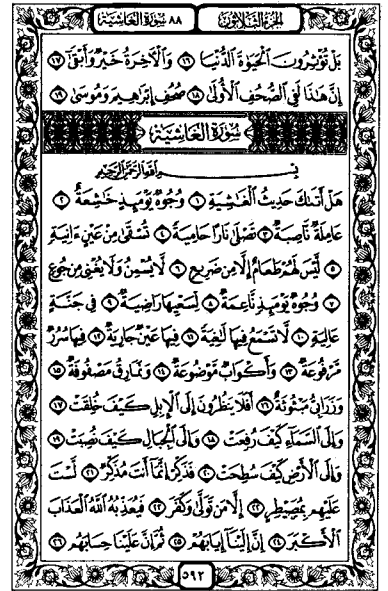 الجزء الثلاثون ٨٨ سورة الغاشية
بَلْ تُؤْثِرُونَ الْحَيَوٰةَ الدُّنْيَا ١٦ وَالْآخِرَةُ خَيْرٌ وَأَبْقَىٰ ١٧
إِنَّ هَٰذَا لَفِي الصُّحُفِ الْأُولَىٰ ١٨ صُحُفِ إِبْرَاهِيمَ وَمُوسَىٰ ١٩
سورة الغاشية
بسم الله الرحمن الرحيم
هَلْ أَتَىٰكَ حَدِيثُ الْغَٰشِيَةِ ١ وُجُوهٌ يَوْمَئِذٍ خَٰشِعَةٌ ٢
عَامِلَةٌ نَّاصِبَةٌ ٣ تَصْلَىٰ نَارًا حَامِيَةً ٤ تُسْقَىٰ مِنْ عَيْنٍ ءَانِيَةٍ
٥ لَّيْسَ لَهُمْ طَعَامٌ إِلَّا مِن ضَرِيعٍ ٦ لَّا يُسْمِنُ وَلَا يُغْنِي مِن جُوعٍ
٧ وُجُوهٌ يَوْمَئِذٍ نَّاعِمَةٌ ٨ لِّسَعْيِهَا رَاضِيَةٌ ٩ فِي جَنَّةٍ
عَالِيَةٍ ١٠ لَّا تَسْمَعُ فِيهَا لَٰغِيَةً ١١ فِيهَا عَيْنٌ جَارِيَةٌ ١٢ فِيهَا سُرُرٌ
مَّرْفُوعَةٌ ١٣ وَأَكْوَابٌ مَّوْضُوعَةٌ ١٤ وَنَمَارِقُ مَصْفُوفَةٌ ١٥
وَزَرَابِيُّ مَبْثُوثَةٌ ١٦ أَفَلَا يَنظُرُونَ إِلَى الْإِبِلِ كَيْفَ خُلِقَتْ ١٧
وَإِلَى السَّمَاءِ كَيْفَ رُفِعَتْ ١٨ وَإِلَى الْجِبَالِ كَيْفَ نُصِبَتْ ١٩
وَإِلَى الْأَرْضِ كَيْفَ سُطِحَتْ ٢٠ فَذَكِّرْ إِنَّمَا أَنتَ مُذَكِّرٌ ٢١ لَّسْتَ
عَلَيْهِم بِمُصَيْطِرٍ ٢٢ إِلَّا مَن تَوَلَّىٰ وَكَفَرَ ٢٣ فَيُعَذِّبُهُ اللَّهُ الْعَذَابَ
الْأَكْبَرَ ٢٤ إِنَّ إِلَيْنَا إِيَابَهُمْ ٢٥ ثُمَّ إِنَّ عَلَيْنَا حِسَابَهُم ٢٦
٥٩٢